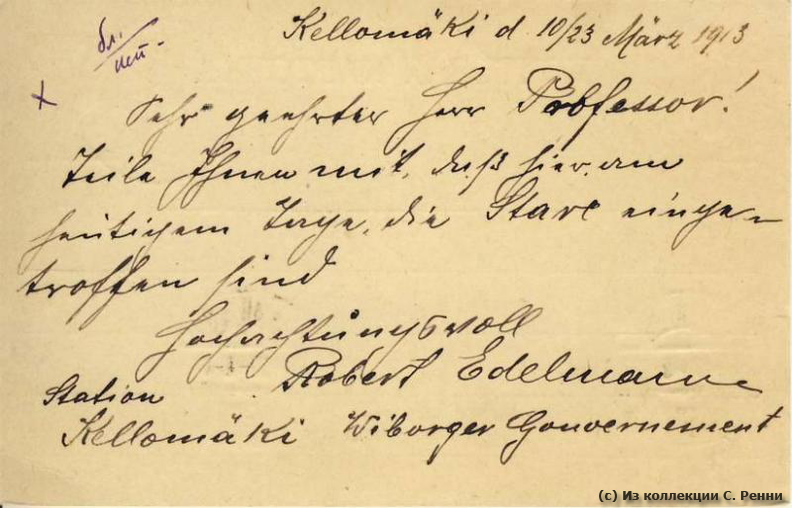 Kellomäki d 10/23 März 1913
Sehr geehrter Herr Professor!
Teile Ihnen mit, daß hier am
heutigem Tage, die Stare einge-
troffen sind
Hochachtungsvoll
Robert Edelmann
Station
Kellomäki Wiborger Gouvernement
(c) Из коллекции С. Ренни